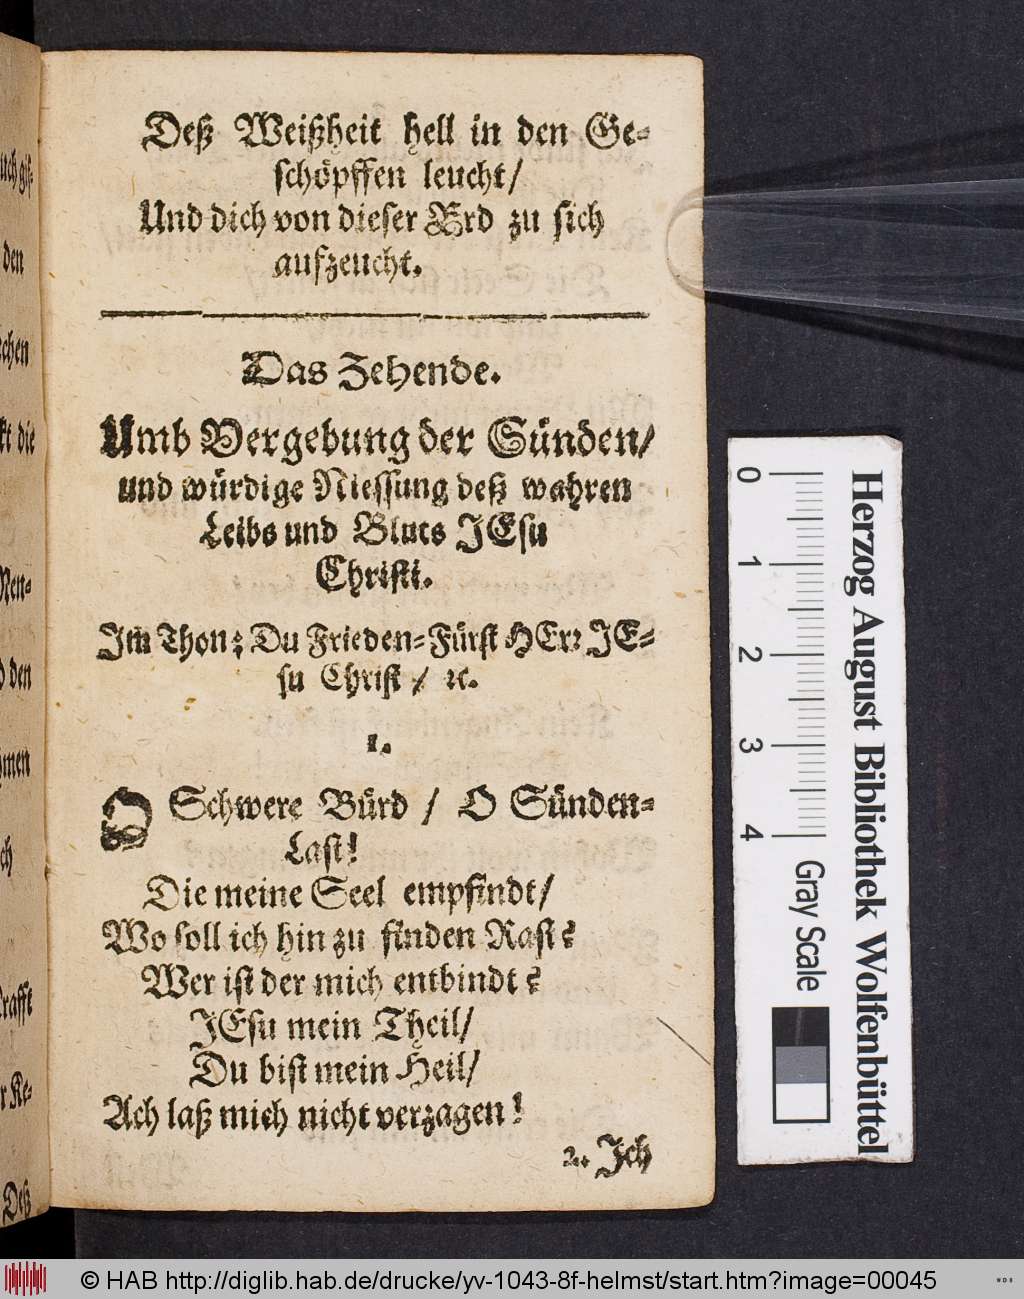 Deß Weißheit hell in den Ge-
schöpffen leucht/
Und dich von dieser Erd zu sich
aufzeucht.
Das Zehende.
Umb Vergebung der Sünden/
und würdige Niessung deß wahren
Leibs und Bluts JEsu
Christi.
Im Thon: Du Frieden-Fürst HErr JE-
su Christ / ꝛc.
1.
O Schwere Bürd / O Sünden-
Last!
Die meine Seel empfindt/
Wo soll ich hin zu finden Rast?
Wer ist der mich entbindt?
JEsu mein Theil/
Du bist mein Heil/
Ach laß mich nicht verzagen!
2. Jch
den
kt die
d den
Deß
0 1 2 3 4
Gray Scale
Herzog August Bibliothek Wolfenbüttel
© HAB http://diglib.hab.de/drucke/yv-1043-8f-helmst/start.htm?image=00045